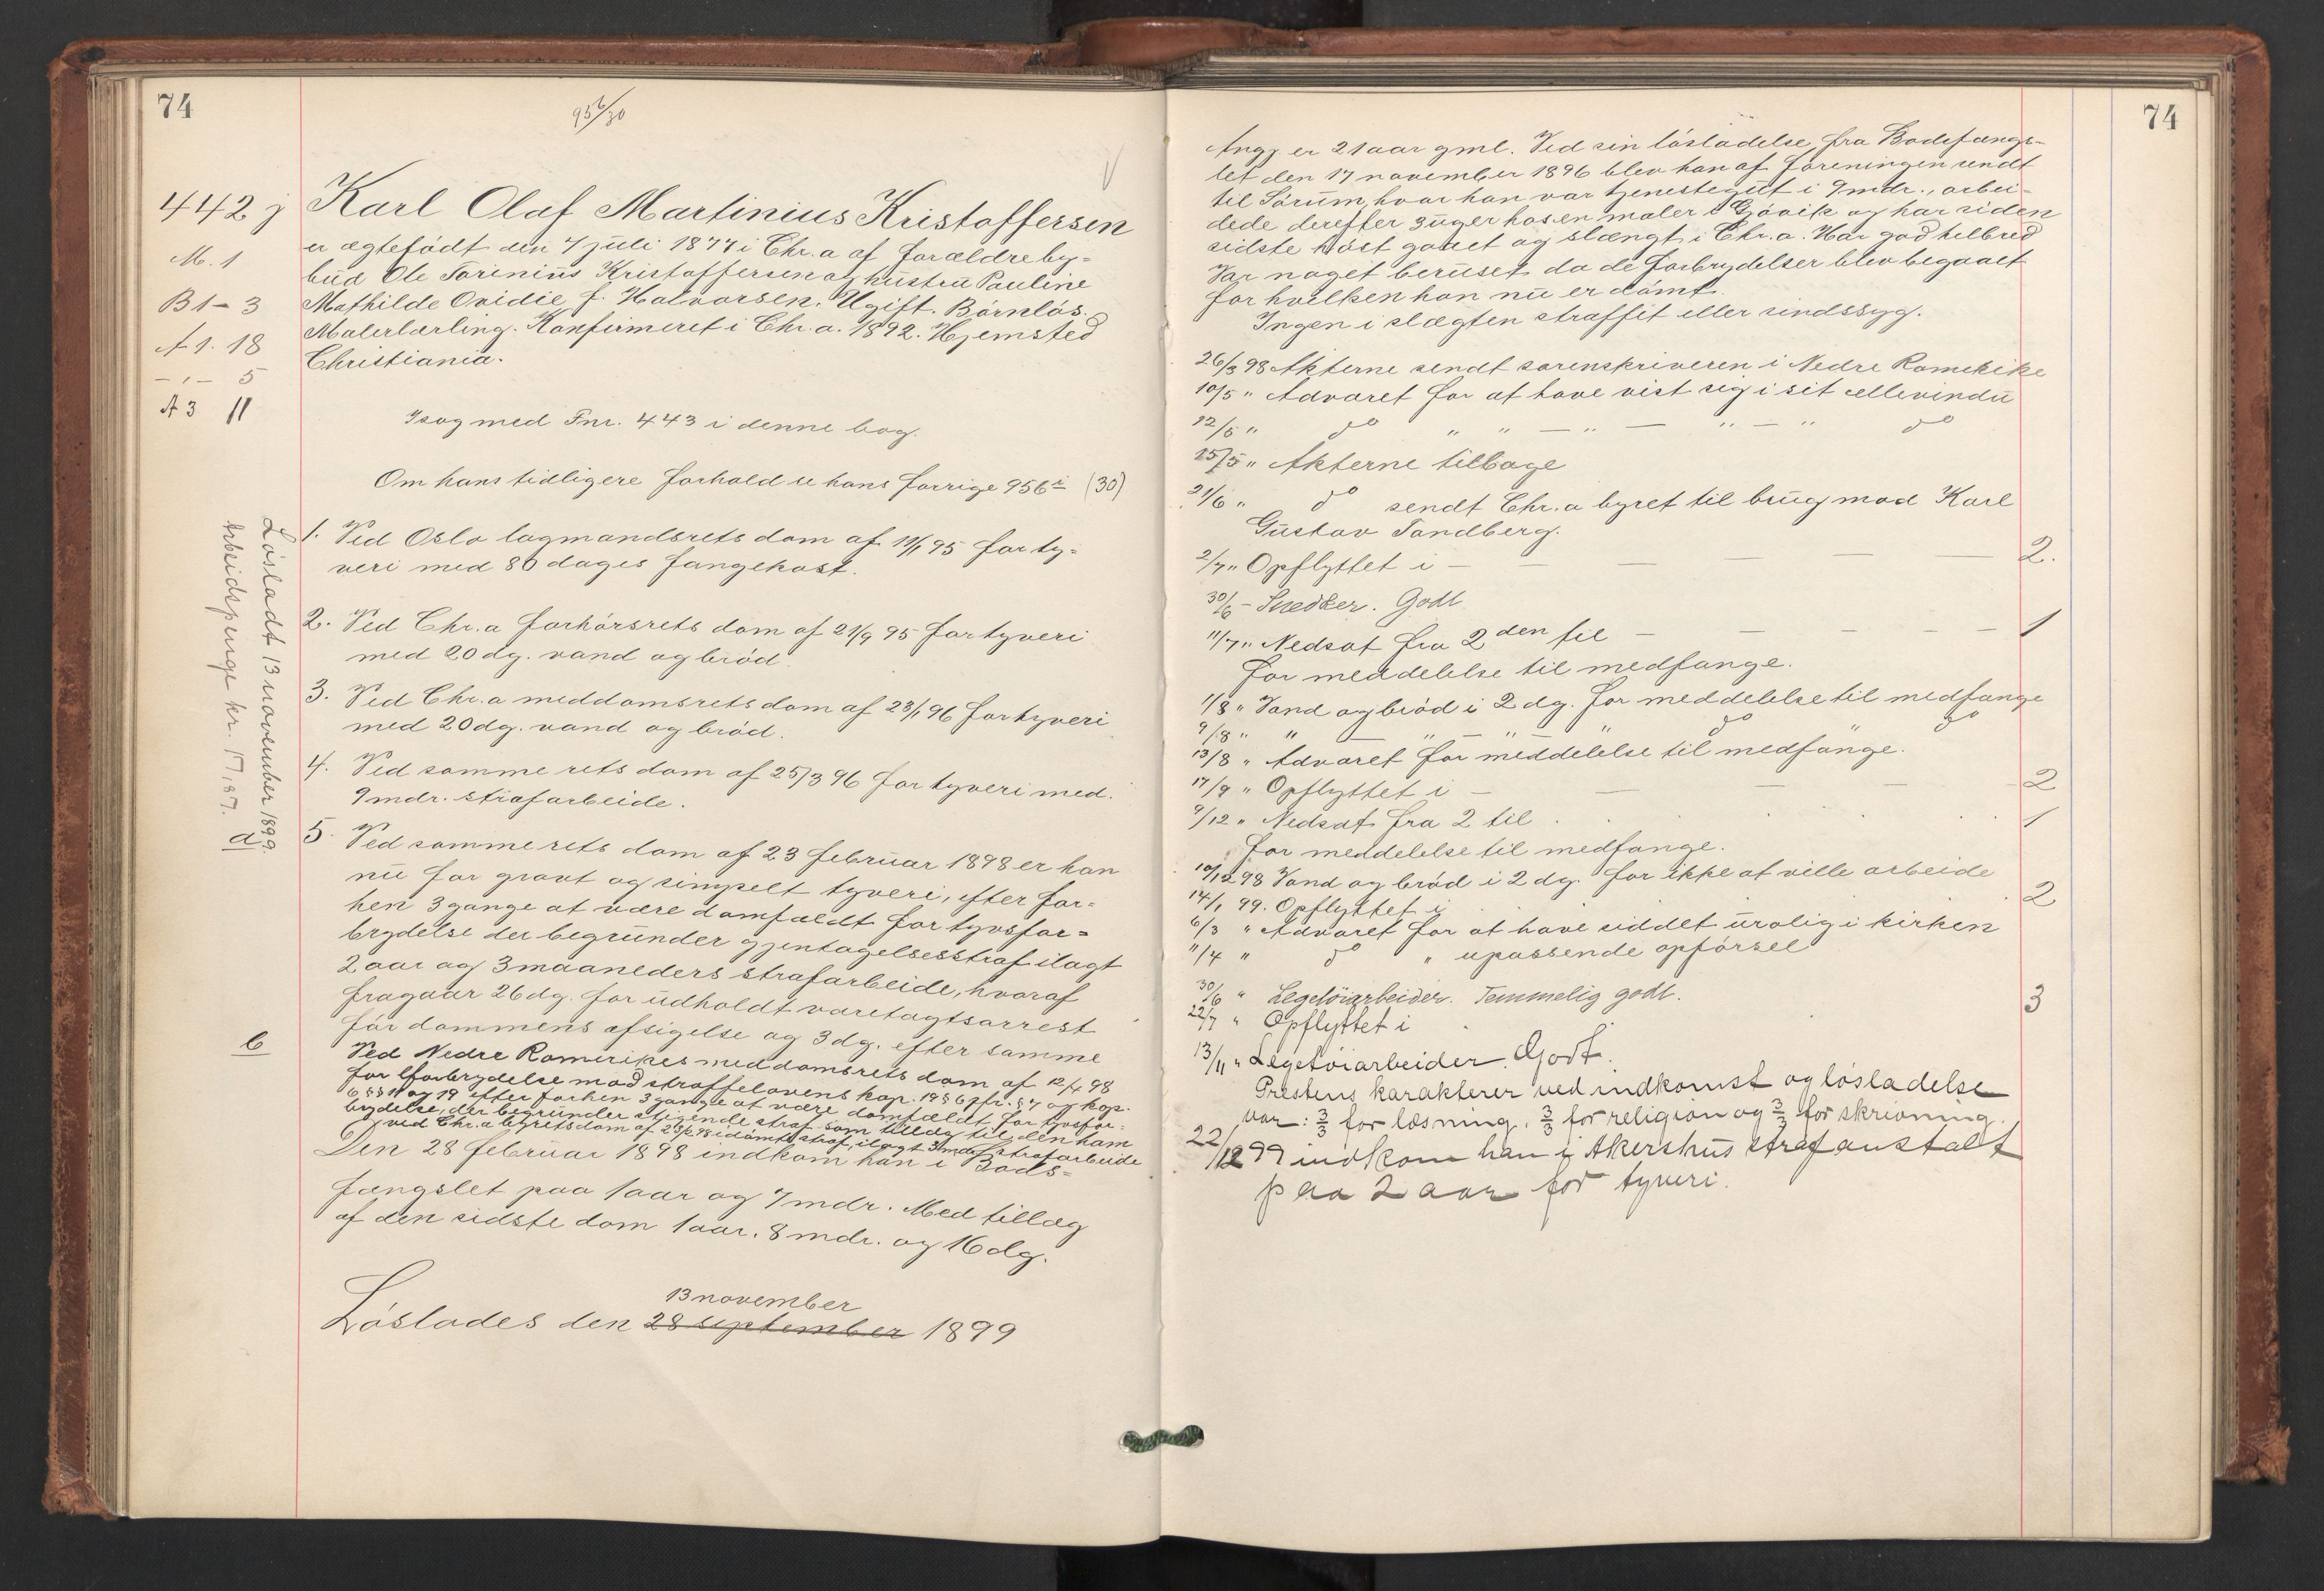 74
95 6/30
442 j Karl Olaf Martinius Kristoffersen
er ægtefödt den 7 juli 1877 i Chr.a af forældre by-
M. 1
bud Ole Torinius Kristoffersen og hustru Pauline
B 1 - 3 Mathilde Ovidie f. Halvorsen. Ugift. Börnlös.
A 1. 18 Malerlærling. Konfirmeret i Chr.a. 1892. Hjemsted
- " - 5 Christiania.
A 3 11
Isag med Fnr. 443 i denne bog.
Om hans tidligere forhold se hans forrige 956 i (30)
1. Ved Oslo lagmandsrets dom af 11/1 95 for ty-
veri med 80 dages fangekost.
2. Ved Chr.a forhörsrets dom af 21/9 95 for tyveri
med 20 dg. vand og bröd.
3. Ved Chr.a meddomsrets dom af 23/1 96 for tyveri
med 20 dg. vand og bröd.
4. Ved samme rets dom af 25/3 96 for tyveri med
9 mdr. strafarbeide.
5. Ved samme rets dom af 23 februar 1898 er han
nu for grovt og simpelt tyveri, efter for-
hen 3 gange at være domfældt for tyvsfor-
brydelse der begrunder gjentagelsesstraf ilagt
2 aar og 3 maaneders strafarbeide, hvoraf
fragaar 26 dg. for udholdt varetægtsarrest
för dommens afsigelse og 3 dg. efter samme
6 Ved Nedre Romerikes meddomsrets dom af 12/4 98
for forbrydelse mod straffelovens kap. 19 § 6 jfr. § 7 og kap.
6 §§ 11 og 19 efter forhen 3 gange at være domfældt for tyvsfor-
brydelse, der begrunder stigende straf som tillæg til den ham
ved Chr.a byrets dom af 23/2 98 idömte straf, ilagt 3 mdr. strafarbeide
Den 28 februar 1898 indkom han i Bods-
fængslet paa 1 aar og 7 mdr. Med tillæg
af den sidste dom 1 aar. 8 mdr. og 16 dg.
13 november
Löslades den 28 september 1899
Lösladt 13 november 1899.
Arbeidspenge kr. 17,07. d
74
Angj. er 21 aar gml. Ved sin lösladelse fra Bodsfængs-
let den 17 november 1896 blev han af foreningen sendt
til Sörum, hvor han var tjenestegut i 9 mdr., arbei-
dede derefter 3 uger hos en maler i Gjövik og har siden
sidste höst gaaet og slængt i Chr.a. Har god helbred
Var noget beruset da de forbrydelser blev begaaet
for hvilken han nu er dömt.
Ingen i slægten straffet eller sindssyg.
26/3 98 Akterne sendt sorenskriveren i Nedre Romerike
10/5 " Advaret for at have vist sig i sit cellevindu
12/5 " do " " — " — " — " do
15/5 " Akterne tilbage
21/6 " do sendt Chr.a byret til brug mod Karl
Gustav Sandberg.
2/7 " Opflyttet i — — — — — 2.
30/6 - Snedker. Godt
11/7 " Nedsat fra 2den til — — — — 1
for meddelelse til medfange.
1/8 " Vand og bröd i 2 dg. for meddelelse til medfange
9/8 " " — " — " do " do
13/8 " Advaret for meddelelse til medfange.
17/9 " Opflyttet i — — — — 2
9/12 " Nedsat fra 2 til . . . . . 1
for meddelelse til medfange.
10/12 98 Vand og bröd i 2 dg. for ikke at ville arbeide
14/1 99. Opflyttet i . 2
6/3 " Advaret for at have siddet urolig i kirken
11/4 " do " upassende opförsel
30/6 " Legetöiarbeider. Temmelig godt.
22/7 " Opflyttet i 3
13/11 " Legetöiarbeider. Godt.
Prestens karakterer ved indkomst og lösladelse
var: 3/3 for læsning, 3/3 for religion og 3/3 for skrivning.
22/12 99 indkom han i Akershus strafanstalt
paa 2 aar for tyveri.